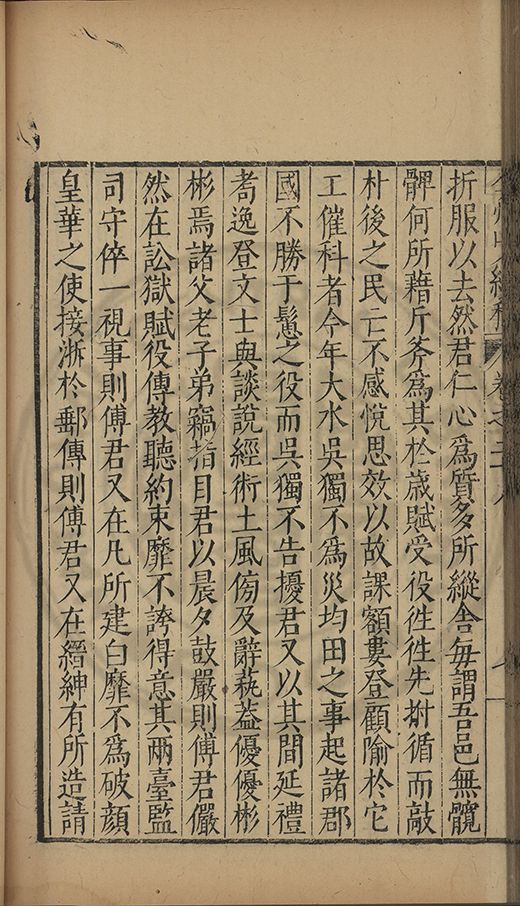 折服以去然君仁心爲質多所縱舍每謂吾邑無髖
髀何所藉斤斧爲其於歲賦受役徃徃先拊循而敲
朴後之民亡不感悅思效以故課額婁登顧隃於它
工催科者今年大水吳獨不爲災均田之事起諸郡
國不勝于䰅之役而吳獨不告擾君又以其間延禮
耇逸登文士與談說經術土風傍及辭蓺葢優優彬
彬焉諸父老子弟竊指目君以晨夕鼓嚴則傅君儼
然在訟獄賦役傳教聽約束靡不誇得意其兩臺監
司守倅一視事則傅君又在凡所建白靡不爲破顔
皇華之使接淅於郵傳則傅君又在縉紳有所造請